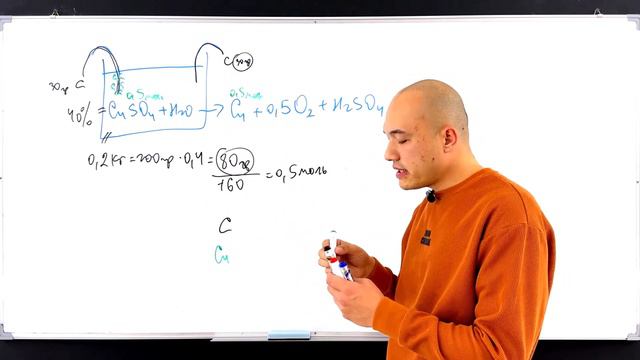 C 30гр
30гр C
0,5моль 0,5моль
40% = CuSO4 + H2O → Cu + 0,5O2 + H2SO4
0,2кг = 200гр · 0,4 = 80гр / 160 = 0,5моль
C
Cu